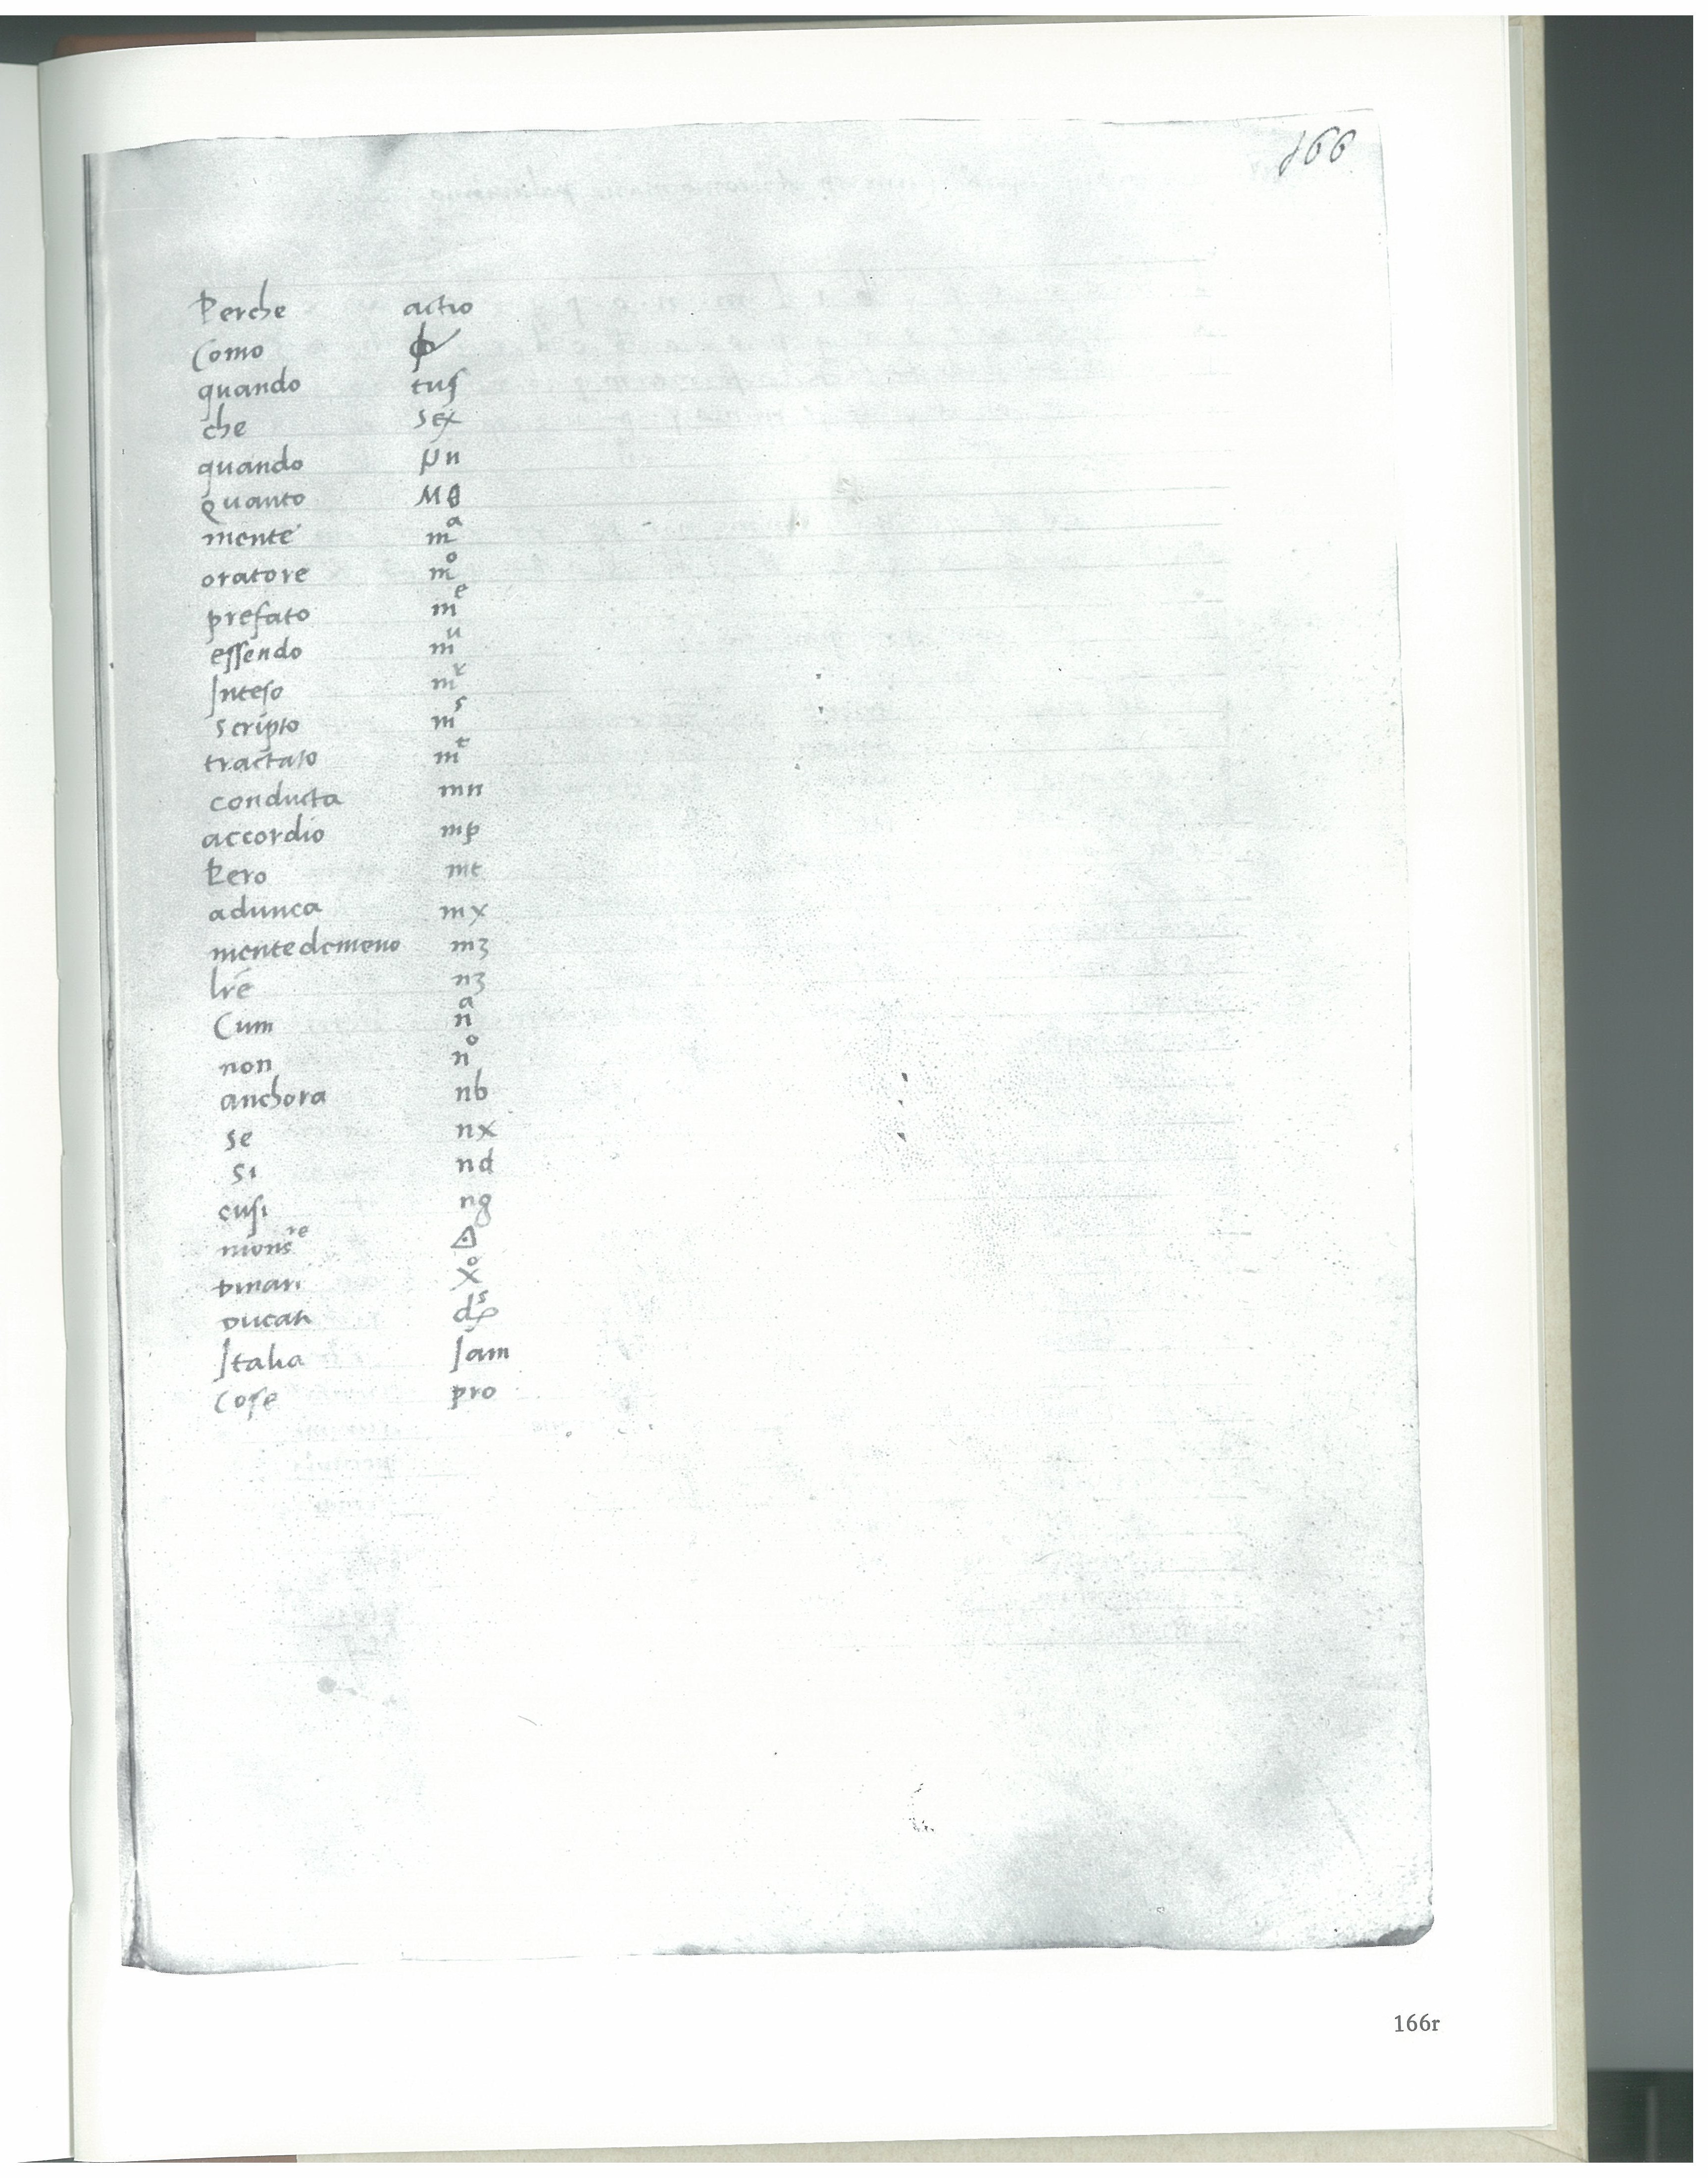 166
Perche actio
Como ϕ
quando tus
che sex
quando μn
Quanto Mθ
mente mᵃ
oratore mᵒ
prefato mᵉ
essendo mᵘ
Inteso mˣ
scripto mˢ
tractato mᵗ
conducta mn
accordio mp
Pero mt
adunca mx
mentedemeno mʒ
lr̄e nʒ
Cum nᵃ
non nᵒ
anchora nb
se nx
si nd
cusi ng
monsʳᵉ ◬
Dinari Xᵒ
Ducati
Italia Iam
Cose pro
166r